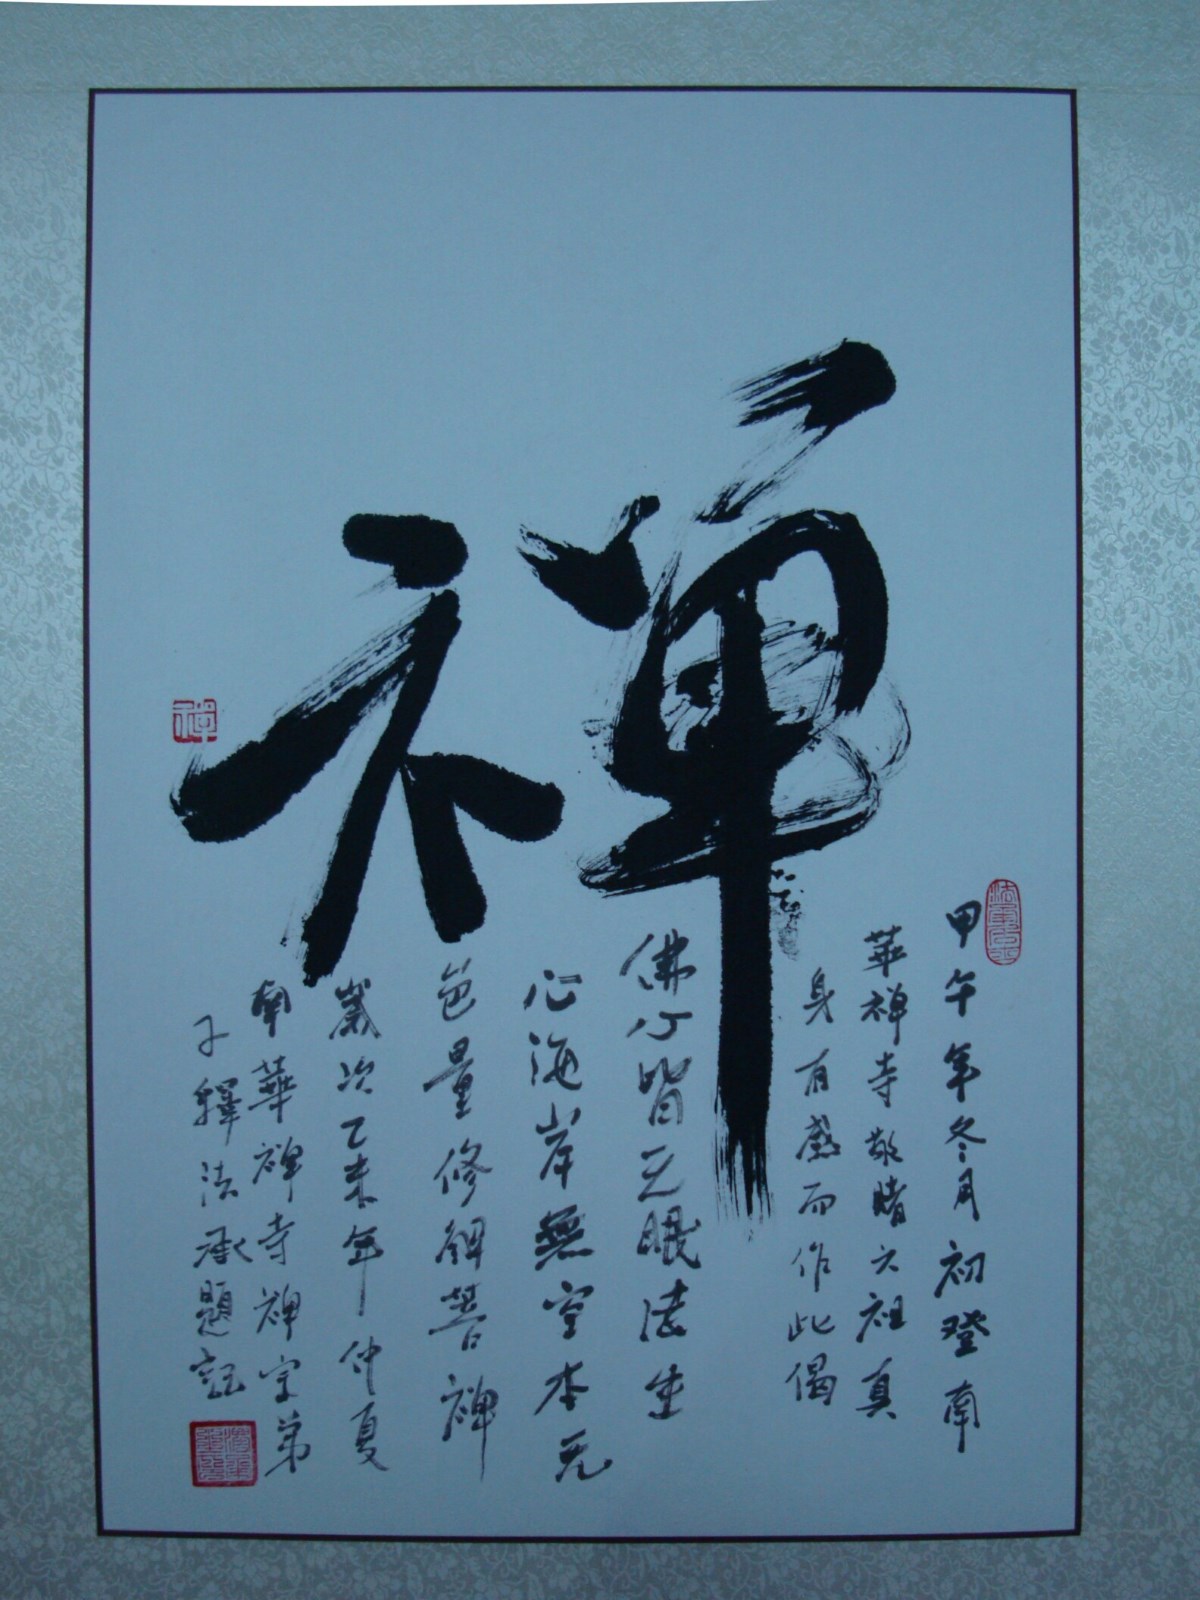 禅
甲午年冬月初登南
華禅寺敬睹六祖真
身有感而作此偈
佛心皆元眼法生
心海岸無空本元
色量修解菩禅
歲次乙未年仲夏
南華禅寺禅宗弟
子釋法承題記
禅